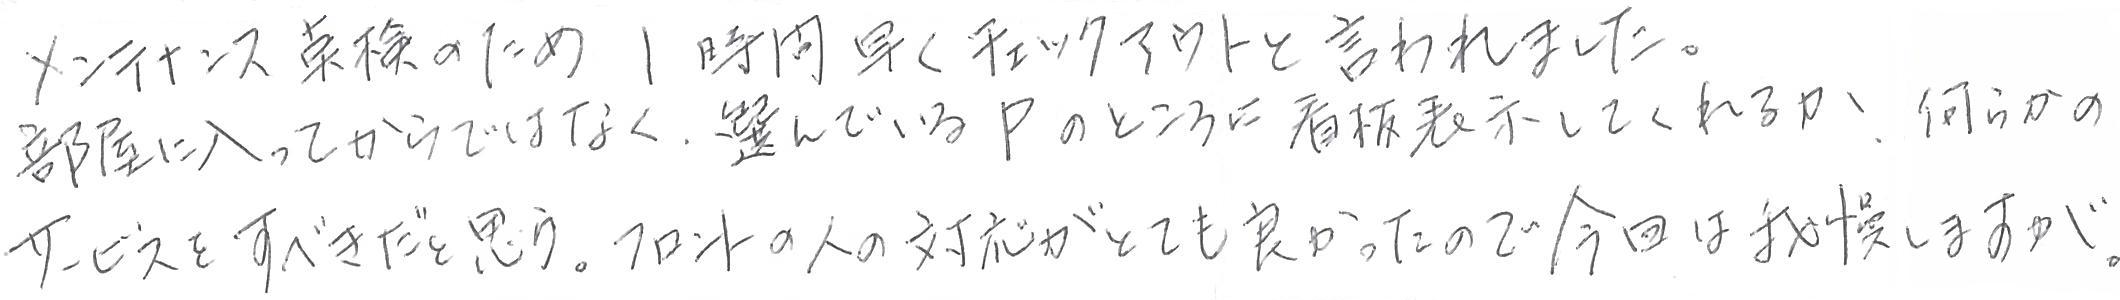 メンテナンス点検のため 1時間早くチェックアウトと言われました。
部屋に入ってからではなく、選んでいるPのところに看板表示してくれるか、何らかの
サービスをすべきだと思う。フロントの人の対応がとても良かったので今回は我慢しますが。